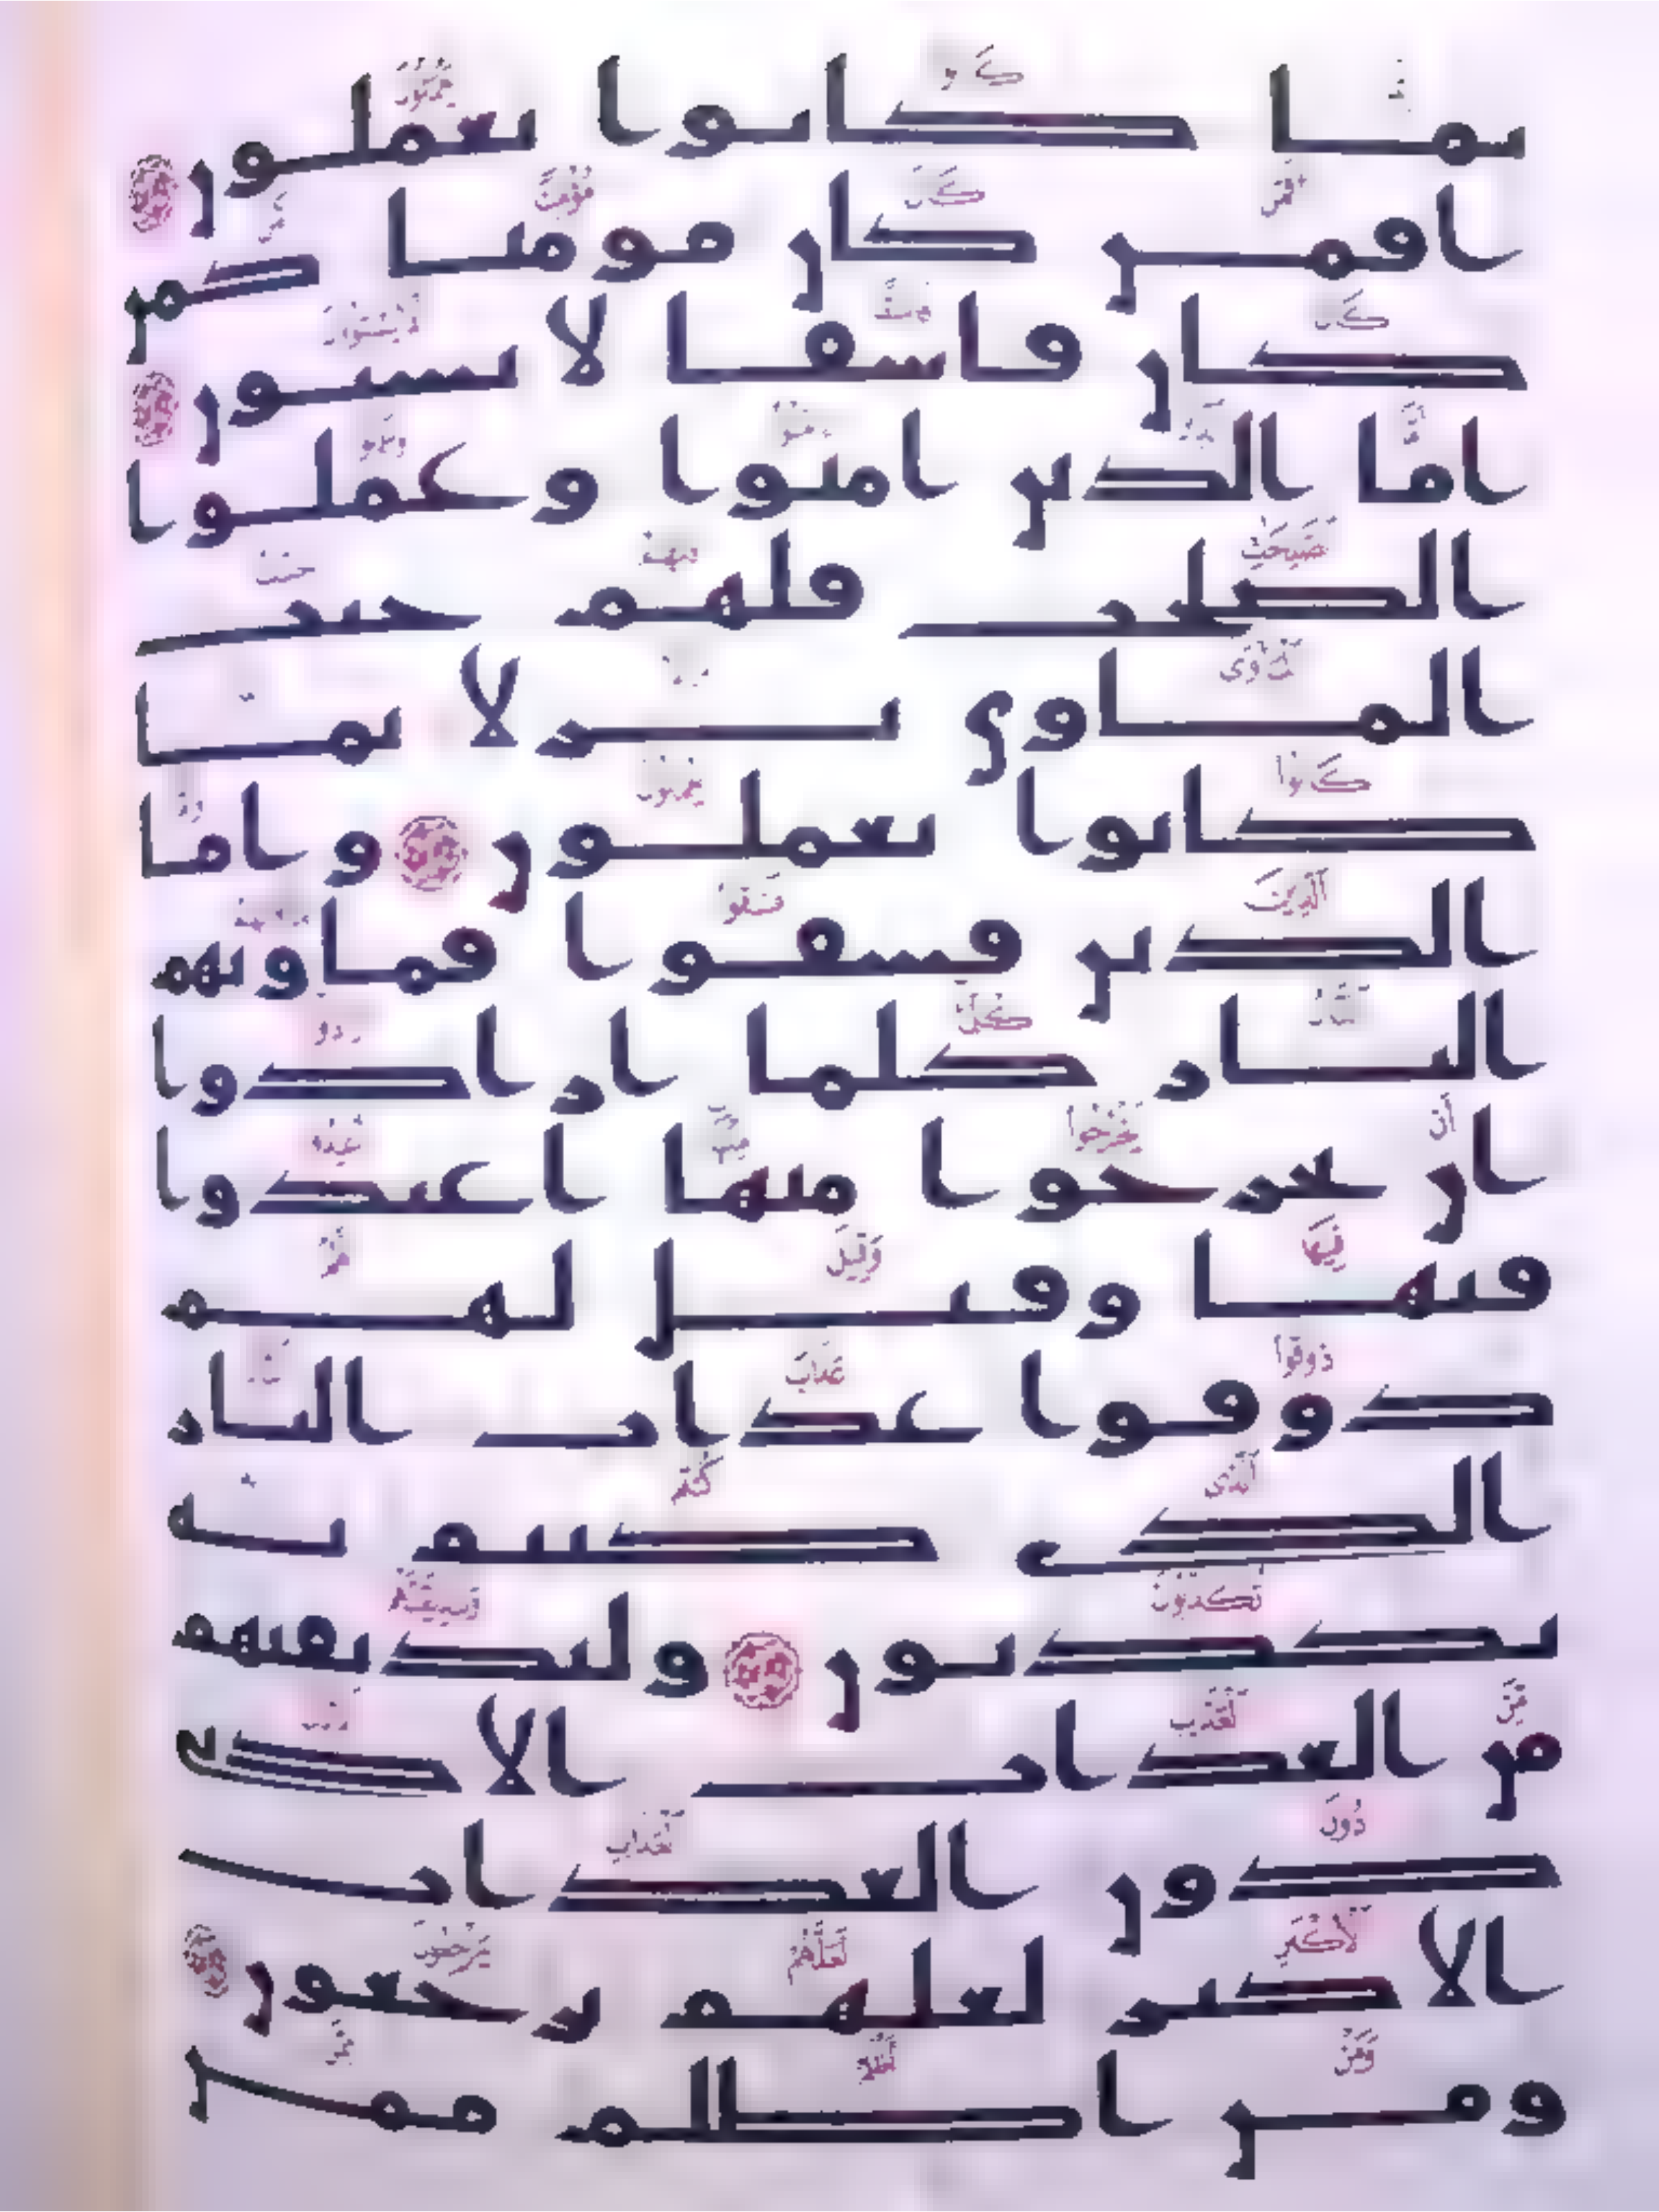 بما كانوا يعملون
افمن كان مومنا كمن
كان فاسقا لا يستون
اما الذين امنوا وعملوا
الصلحت فلهم جنت
الماوى نزلا بما
كانوا يعملون واما
الذين فسقوا فماويهم
النار كلما ارادوا
ان يخرجوا منها اعيدوا
فيها وقيل لهم
ذوقوا عذاب النار
الذي كنتم به
تكذبون ولنذيقنهم
من العذاب الادنى
دون العذاب
الاكبر لعلهم يرجعون
ومن اظلم ممن